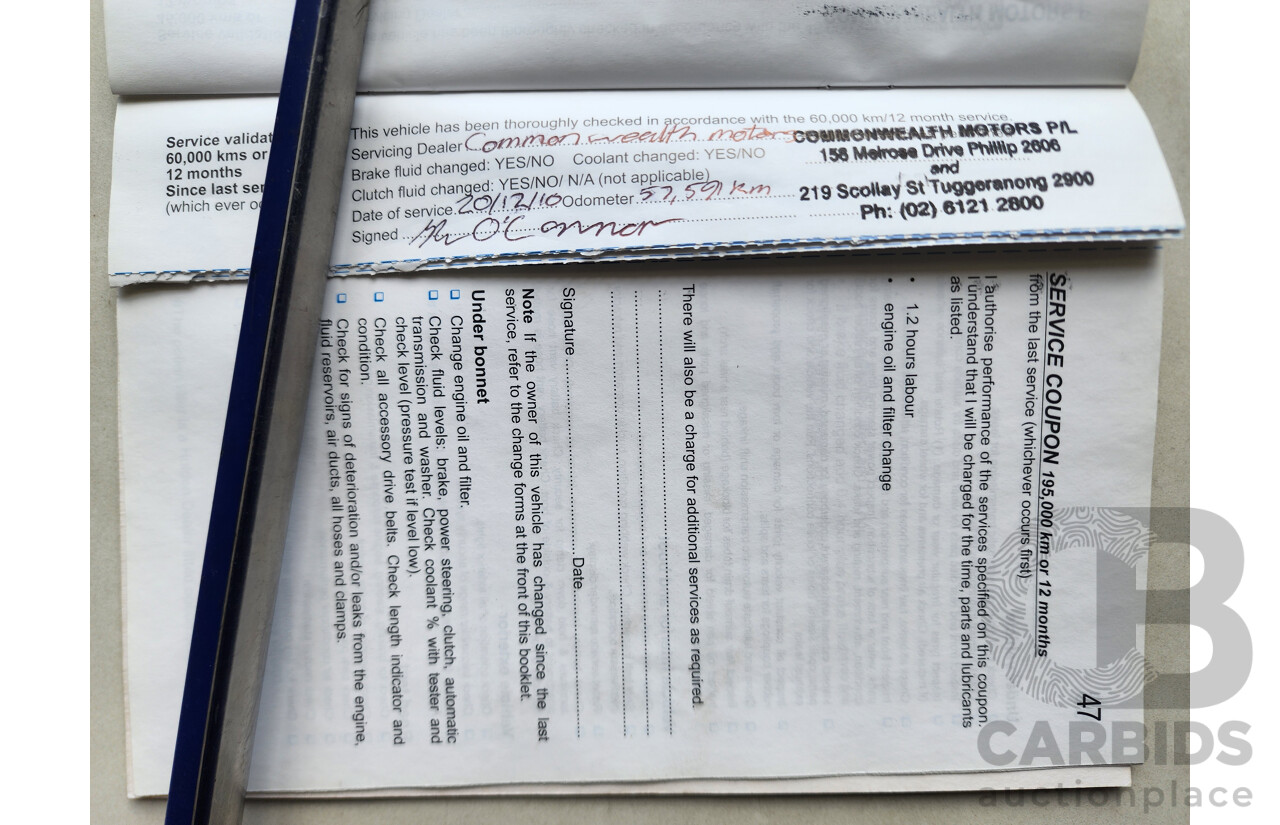 Service validat
60,000 kms or
12 months
Since last ser
(which ever oc
This vehicle has been thoroughly checked in accordance with the 60,000 km/12 month service.
Servicing Dealer Commonwealth motors
Brake fluid changed: YES/NO Coolant changed: YES/NO
Clutch fluid changed: YES/NO/ N/A (not applicable)
Date of service 20/12/10 Odometer 57,591 km
Signed O'Connor
COMMONWEALTH MOTORS P/L
156 Melrose Drive Phillip 2606
and
219 Scollay St Tuggeranong 2900
Ph: (02) 6121 2800
47
SERVICE COUPON 195,000 km or 12 months
from the last service (whichever occurs first)
I authorise performance of the services specified on this coupon.
I understand that I will be charged for the time, parts and lubricants
as listed.
• 1.2 hours labour
• engine oil and filter change
There will also be a charge for additional services as required.
Signature Date
Note If the owner of this vehicle has changed since the last
service, refer to the change forms at the front of this booklet.
Under bonnet
Change engine oil and filter.
Check fluid levels: brake, power steering, clutch, automatic
transmission and washer. Check coolant % with tester and
check level (pressure test if level low).
Check all accessory drive belts. Check length indicator and
condition.
Check for signs of deterioration and/or leaks from the engine,
fluid reservoirs, air ducts, all hoses and clamps.
CARBIDS
auctionplace